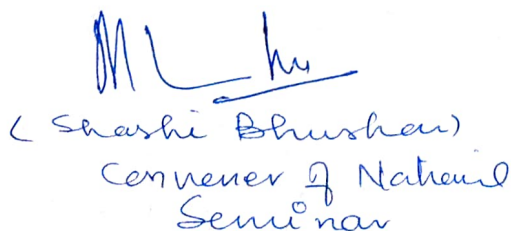 (Shashi Bhushan)
Convener of National
Seminar